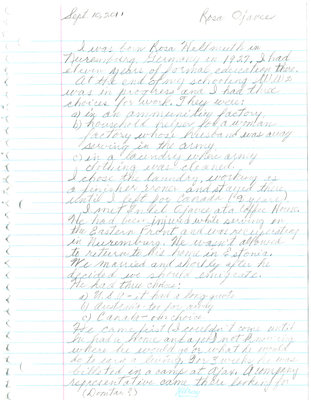 Sept 10, 2011 Rosa Ojavee
I was born Rosa Hellmuth in
Nuremburg, Germany in 1922. I had
eleven years of formal education there.
At the end of my schooling W.W.II
was in progress and I had three
choices for work. They were:
a) in an ammunition factory
b) household helper for a woman
factory whose husband was away
serving in the army
c) in a laundry where army
clothing was cleaned.
I chose the laundry, working as
a finisher ironer and stayed there
until I left for Canada (9 years).
I met Ojavee at a
He had been injured while serving on
the Eastern Front and was recuperating
in Nuremburg. He wasn't allowed
to return to his home in Estonia.
We married and shortly after he
decided we should emigrate.
He had three choices:
a) U.S.A. - it had a long
b) Australia - too far away
c) Canada - choice
He came first (I couldn't come until
he had a home and a job) not knowing
where he would go or what he would
do to earn a living. For 3 weeks he was
billeted in a camp at Ajax. A company
representative came there looking for